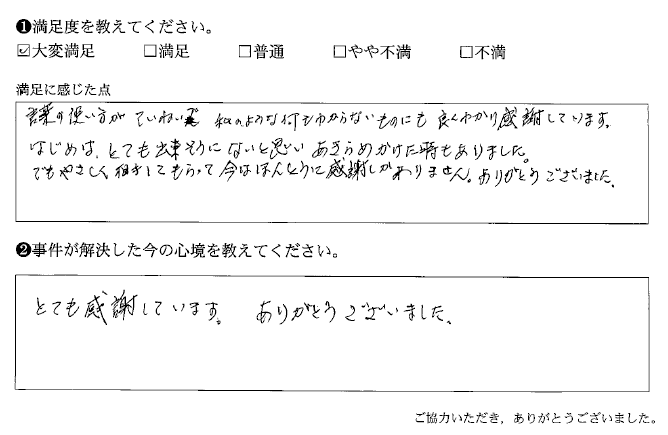 ❶満足度を教えてください。
☑大変満足 □満足 □普通 □やや不満 □不満
満足に感じた点
言葉の使い方が ていねいで 私のような何もわからないものにも 良くわかり感謝しています。
はじめは、とても出来そうにないと思い あきらめかけた時もありました。
でもやさしく 指導してもらって 今はほんとうに感謝しかありません。ありがとうございました。
❷事件が解決した今の心境を教えてください。
とても感謝しています。 ありがとうございました。
ご協力いただき，ありがとうございました。